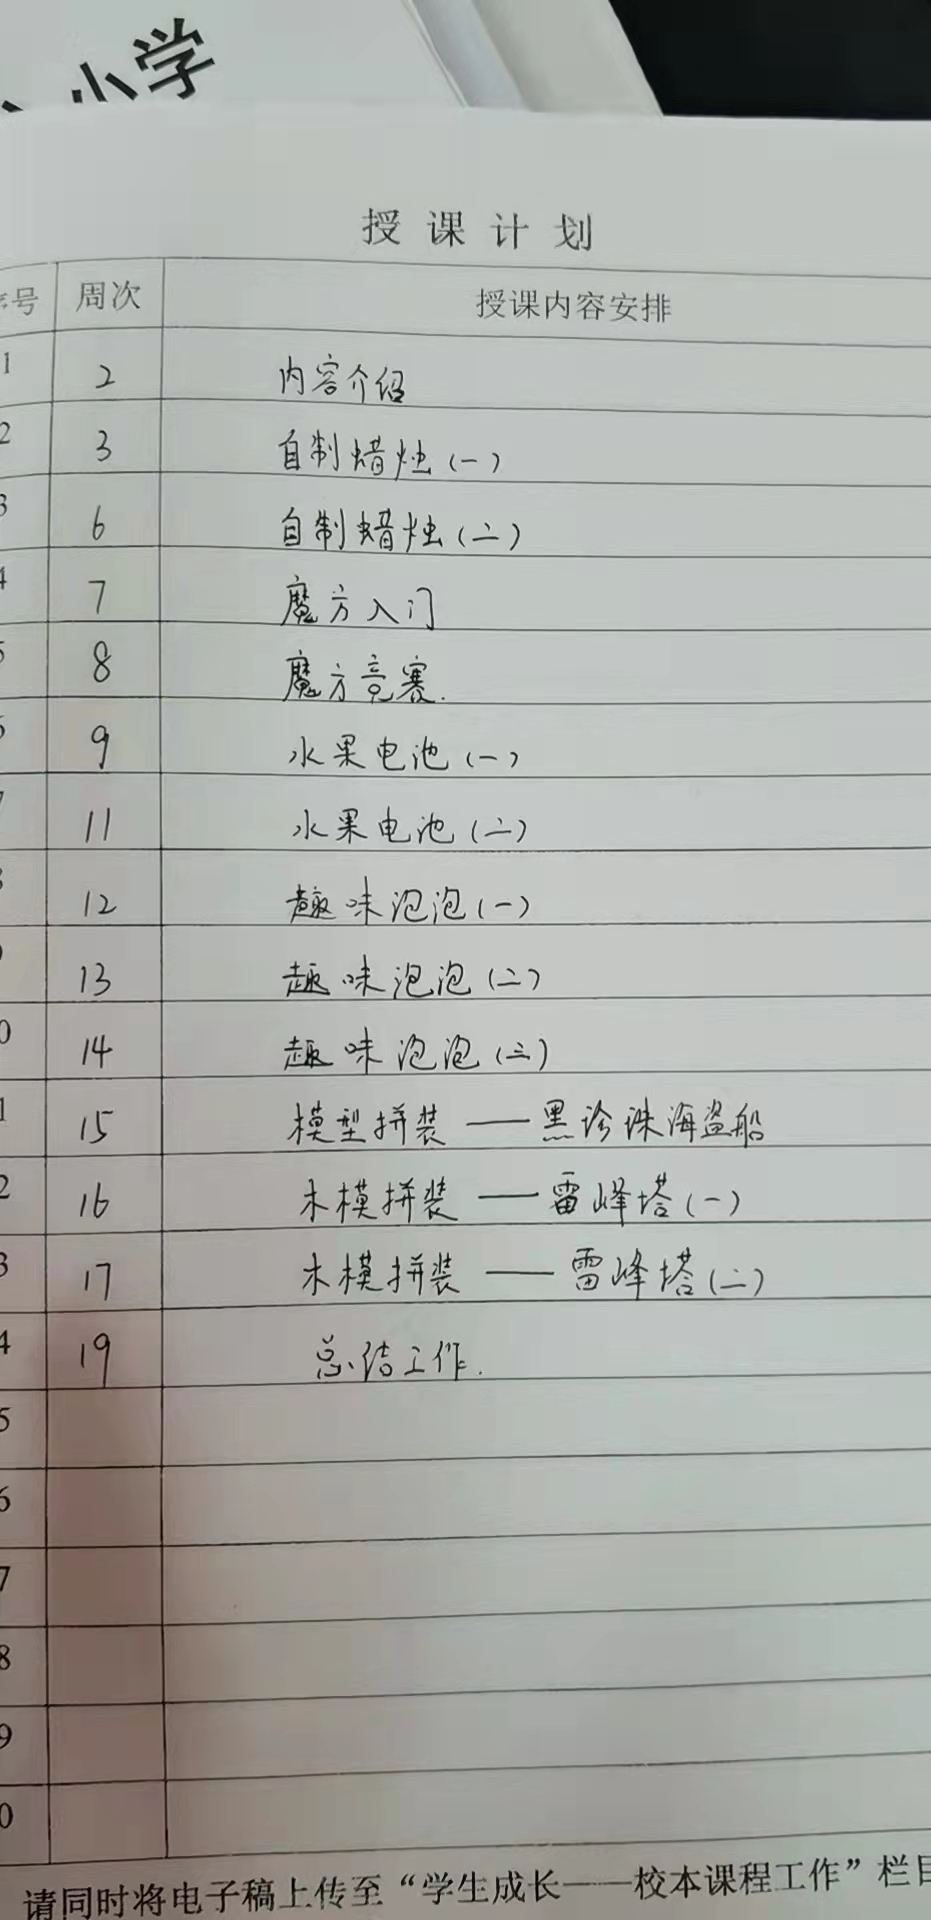 小学
授课计划
序号 周次 授课内容安排
1 2 内容介绍
2 3 自制蜡烛(一)
3 6 自制蜡烛(二)
4 7 魔方入门
5 8 魔方竞赛.
6 9 水果电池(一)
7 11 水果电池(二)
8 12 趣味泡泡(一)
9 13 趣味泡泡(二)
0 14 趣味泡泡(三)
1 15 模型拼装——黑珍珠海盗船
2 16 木模拼装——雷峰塔(一)
3 17 木模拼装——雷峰塔(二)
4 19 总结工作.
5
6
7
8
9
0
请同时将电子稿上传至“学生成长——校本课程工作”栏目